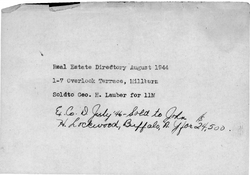 Real Estate Directory August 1944
1-7 Overlook Terrace, Millburn
Soldto Geo. H. Lamber for 11M
E. Co. D July 46 - Sold to John
H. Lockwood, Buffalo, N.Y. for 24,500.